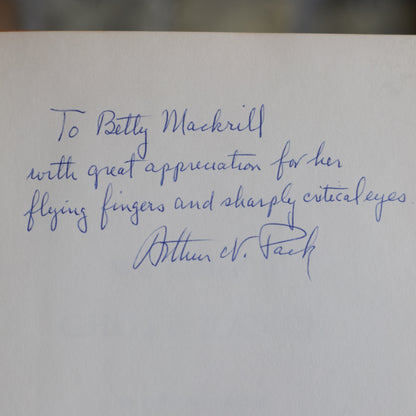 To Betty Mackrill
with great appreciation for her
flying fingers and sharply critical eyes.
Arthur N. Pack